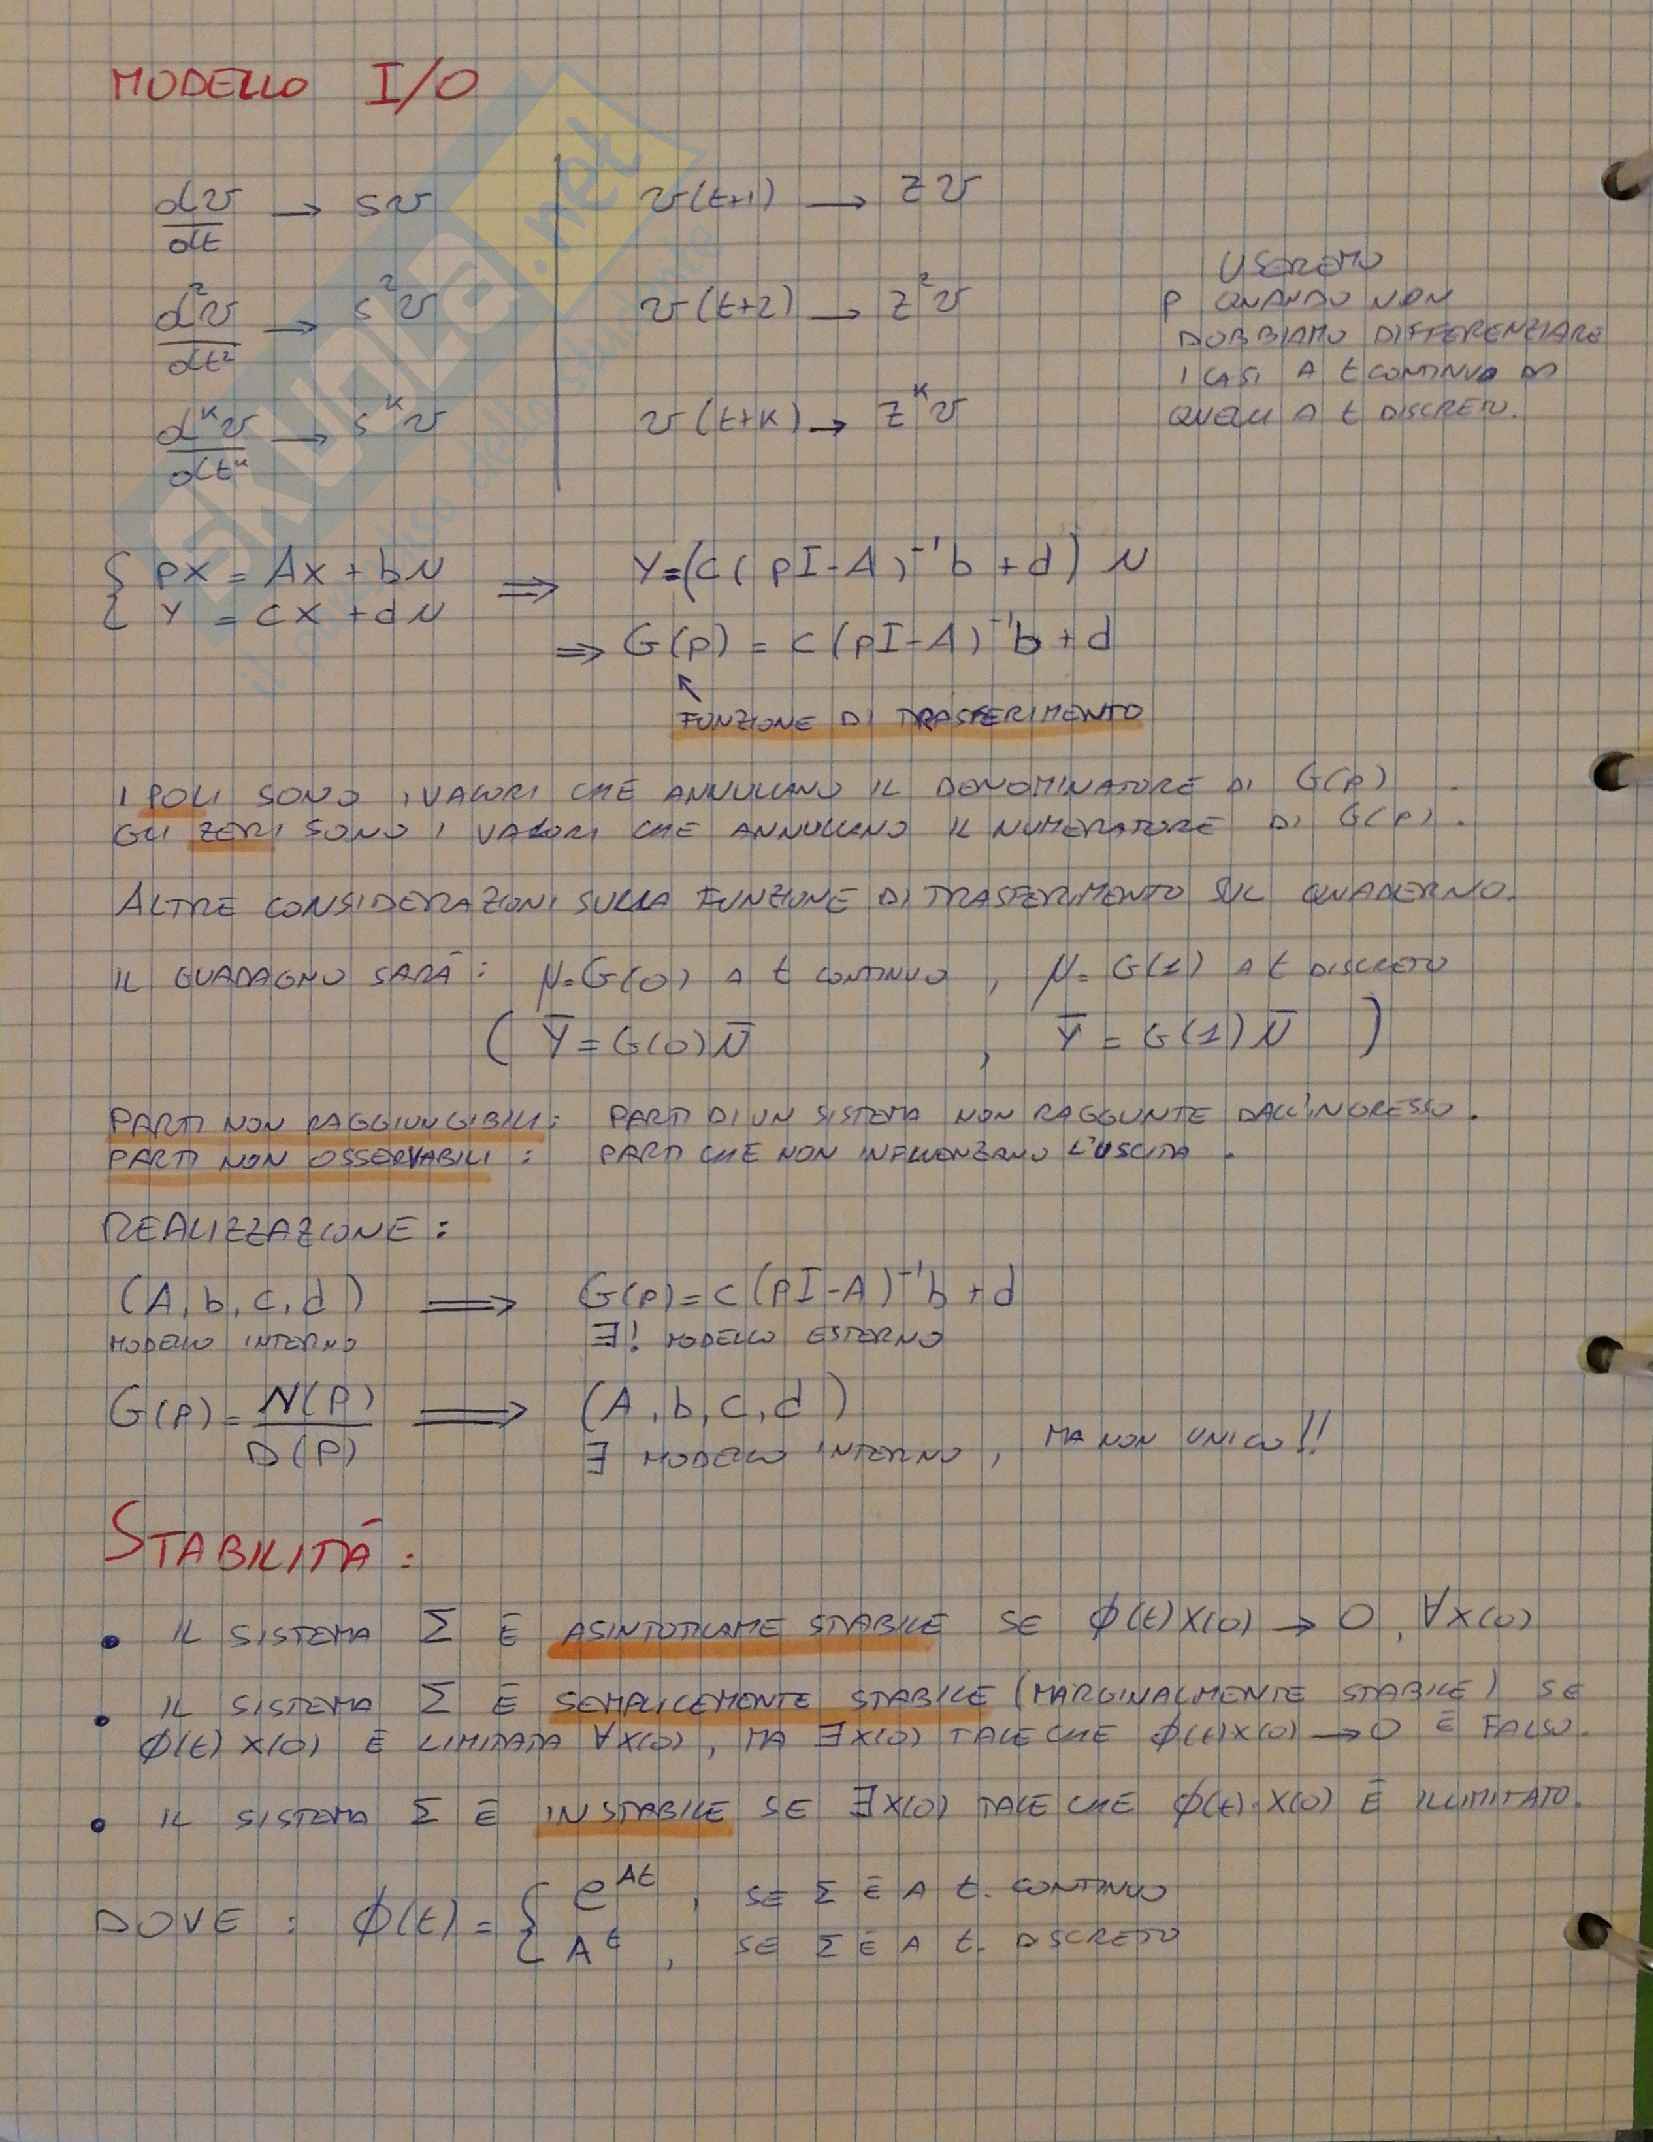 MODELLO I/O
dv/dt → sv
v(t+1) → zv
d²v/dt² → s²v
v(t+2) → z²v
d^k v/dt^k → s^k v
v(t+k) → z^k v
USEREMO
P QUANDO NON
DOBBIAMO DIFFERENZIARE
I CASI A t CONTINUO DA
QUELLI A t DISCRETO.
{ px = Ax + bu
{ y = cx + du
⇒ y = (c(pI-A)⁻¹b + d) u
⇒ G(p) = c(pI-A)⁻¹b + d
↖
FUNZIONE DI TRASFERIMENTO
I POLI SONO I VALORI CHE ANNULLANO IL DENOMINATORE DI G(p).
GLI ZERI SONO I VALORI CHE ANNULLANO IL NUMERATORE DI G(p).
ALTRE CONSIDERAZIONI SULLA FUNZIONE DI TRASFERIMENTO SUL QUADERNO.
IL GUADAGNO SARÀ: μ=G(0) A t CONTINUO, μ=G(1) A t DISCRETO
( ȳ = G(0) ū , ȳ = G(1) ū )
PARTI NON RAGGIUNGIBILI: PARTI DI UN SISTEMA NON RAGGIUNTE DALL'INGRESSO.
PARTI NON OSSERVABILI: PARTI CHE NON INFLUENZANO L'USCITA.
REALIZZAZIONE:
(A, b, c, d) ⟹ G(p) = c(pI-A)⁻¹b + d
MODELLO INTERNO ∃! MODELLO ESTERNO
G(p) = N(p)/D(p) ⟹ (A, b, c, d)
∃ MODELLO INTERNO, MA NON UNICO!!
STABILITÀ:
• IL SISTEMA Σ È ASINTOTICAME STABILE SE ϕ(t)x(0) → 0, ∀x(0)
• IL SISTEMA Σ È SEMPLICEMENTE STABILE (MARGINALMENTE STABILE) SE
ϕ(t)x(0) È LIMITATA ∀x(0), MA ∃x(0) TALE CHE ϕ(t)x(0) → 0 È FALSO.
• IL SISTEMA Σ È INSTABILE SE ∃x(0) TALE CHE ϕ(t)·x(0) È ILLIMITATO.
DOVE: ϕ(t) = { e^{At}, SE Σ È A t. CONTINUO
{ A^t, SE Σ È A t. DISCRETO
skuola.net